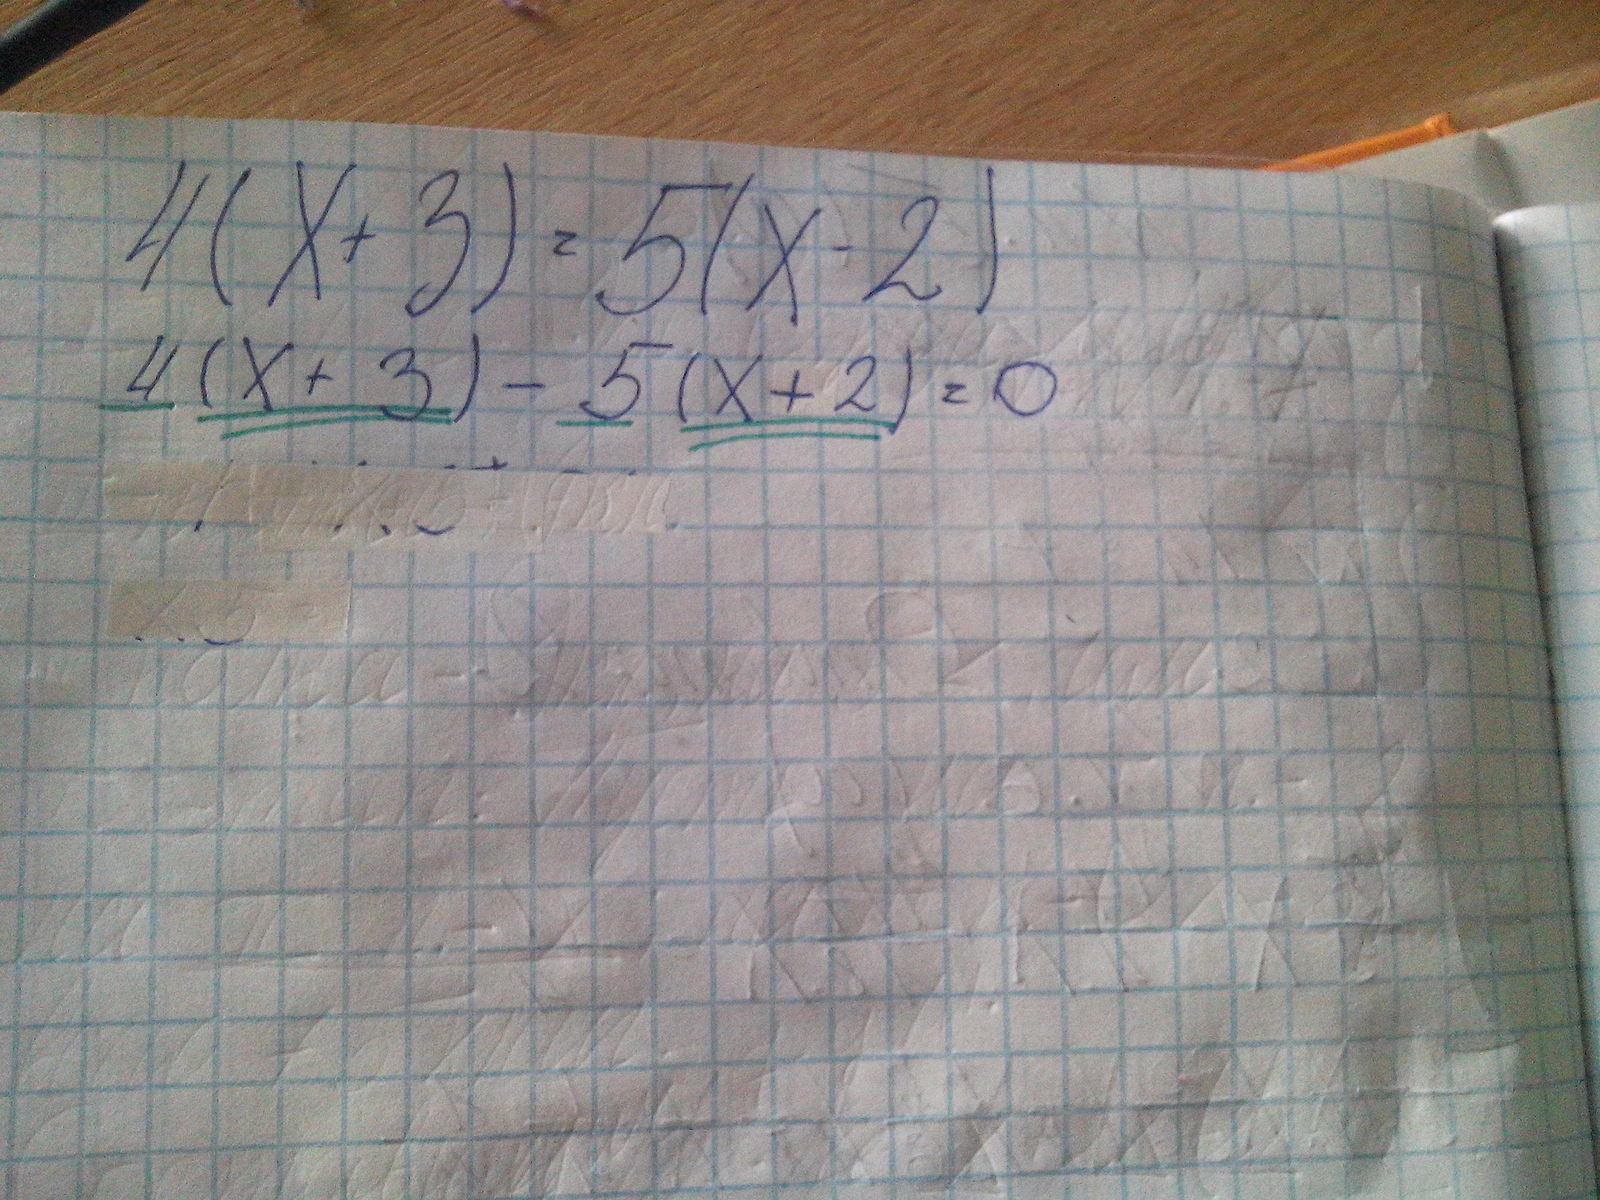 4(x+3)=5(x-2)
4(x+3)-5(x+2)=0